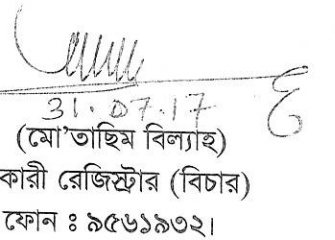 31.07.17
(মো'তাছিম বিল্যাহ)
কারী রেজিস্ট্রার (বিচার)
ফোন ঃ ৯৫৬১৯৩২।